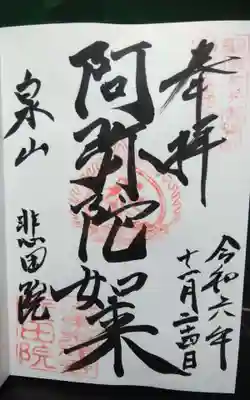 奉拝
令和六年
十一月二十四日
阿弥陀如来
泉山 悲田院